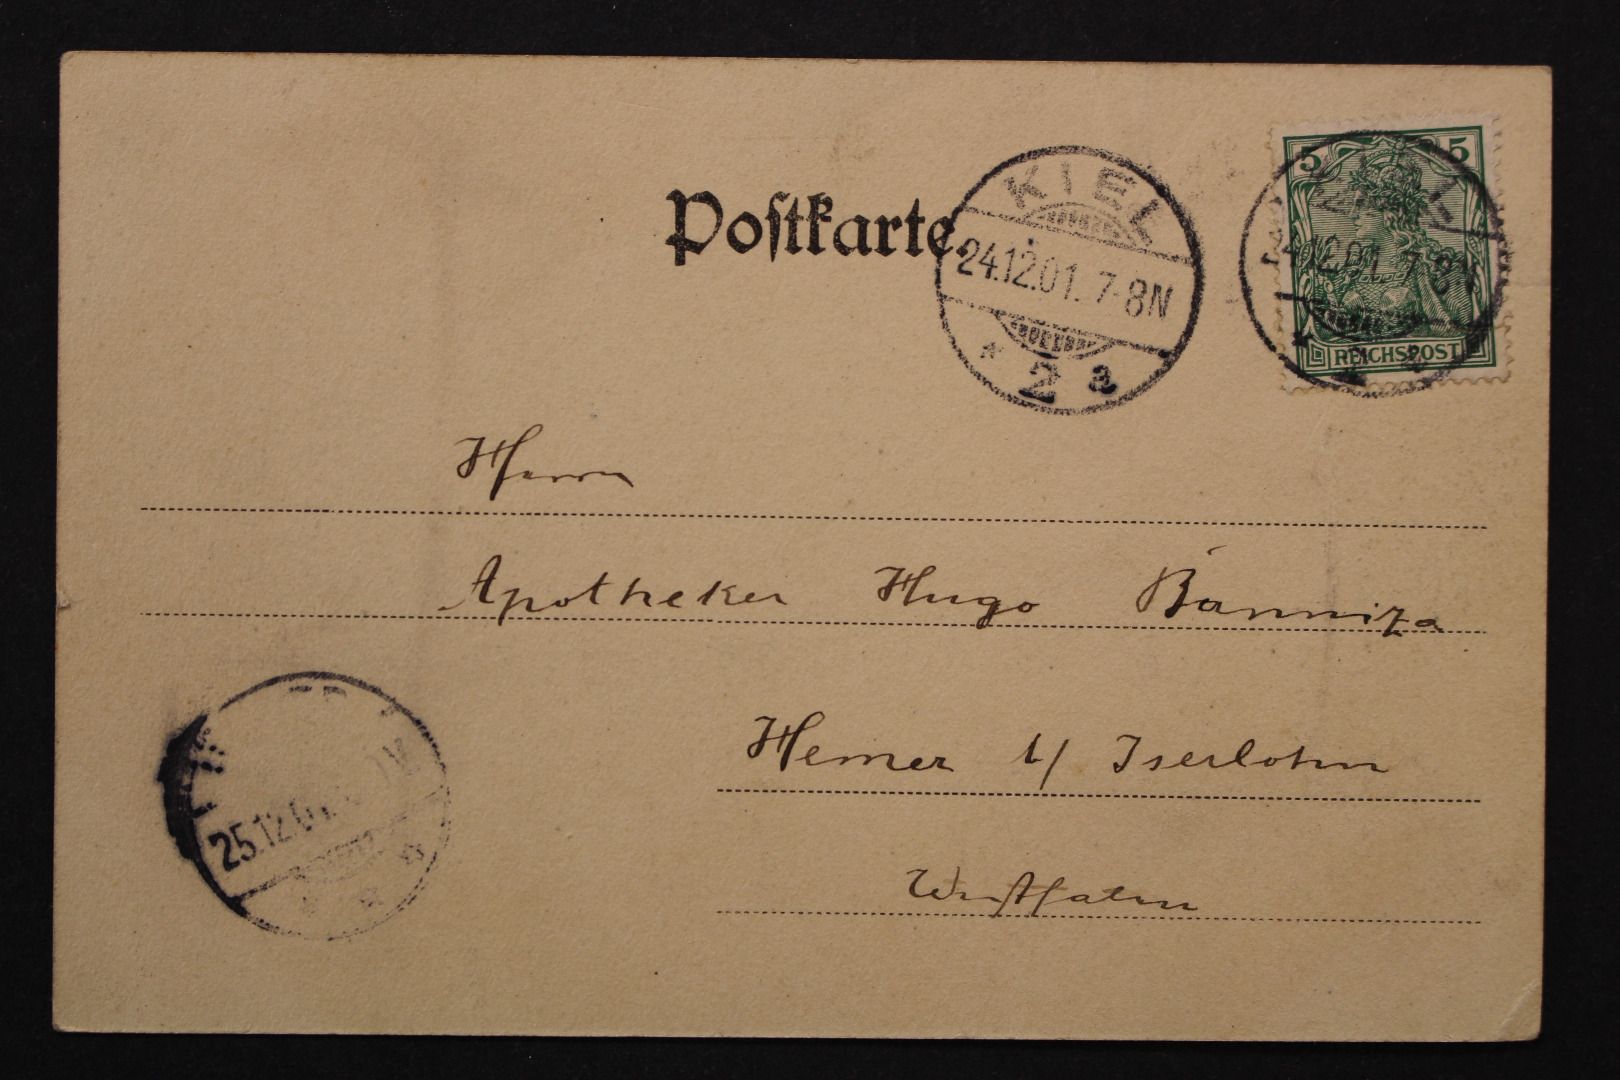 Postkarte.
KIEL
24.12.01. 7-8N
* 2 a
5 5
12.01. 7-8N
REICHSPOST
Herrn
Apotheker Hugo
Hemer b/ Iserlohn
Westfalen
25.12.01.